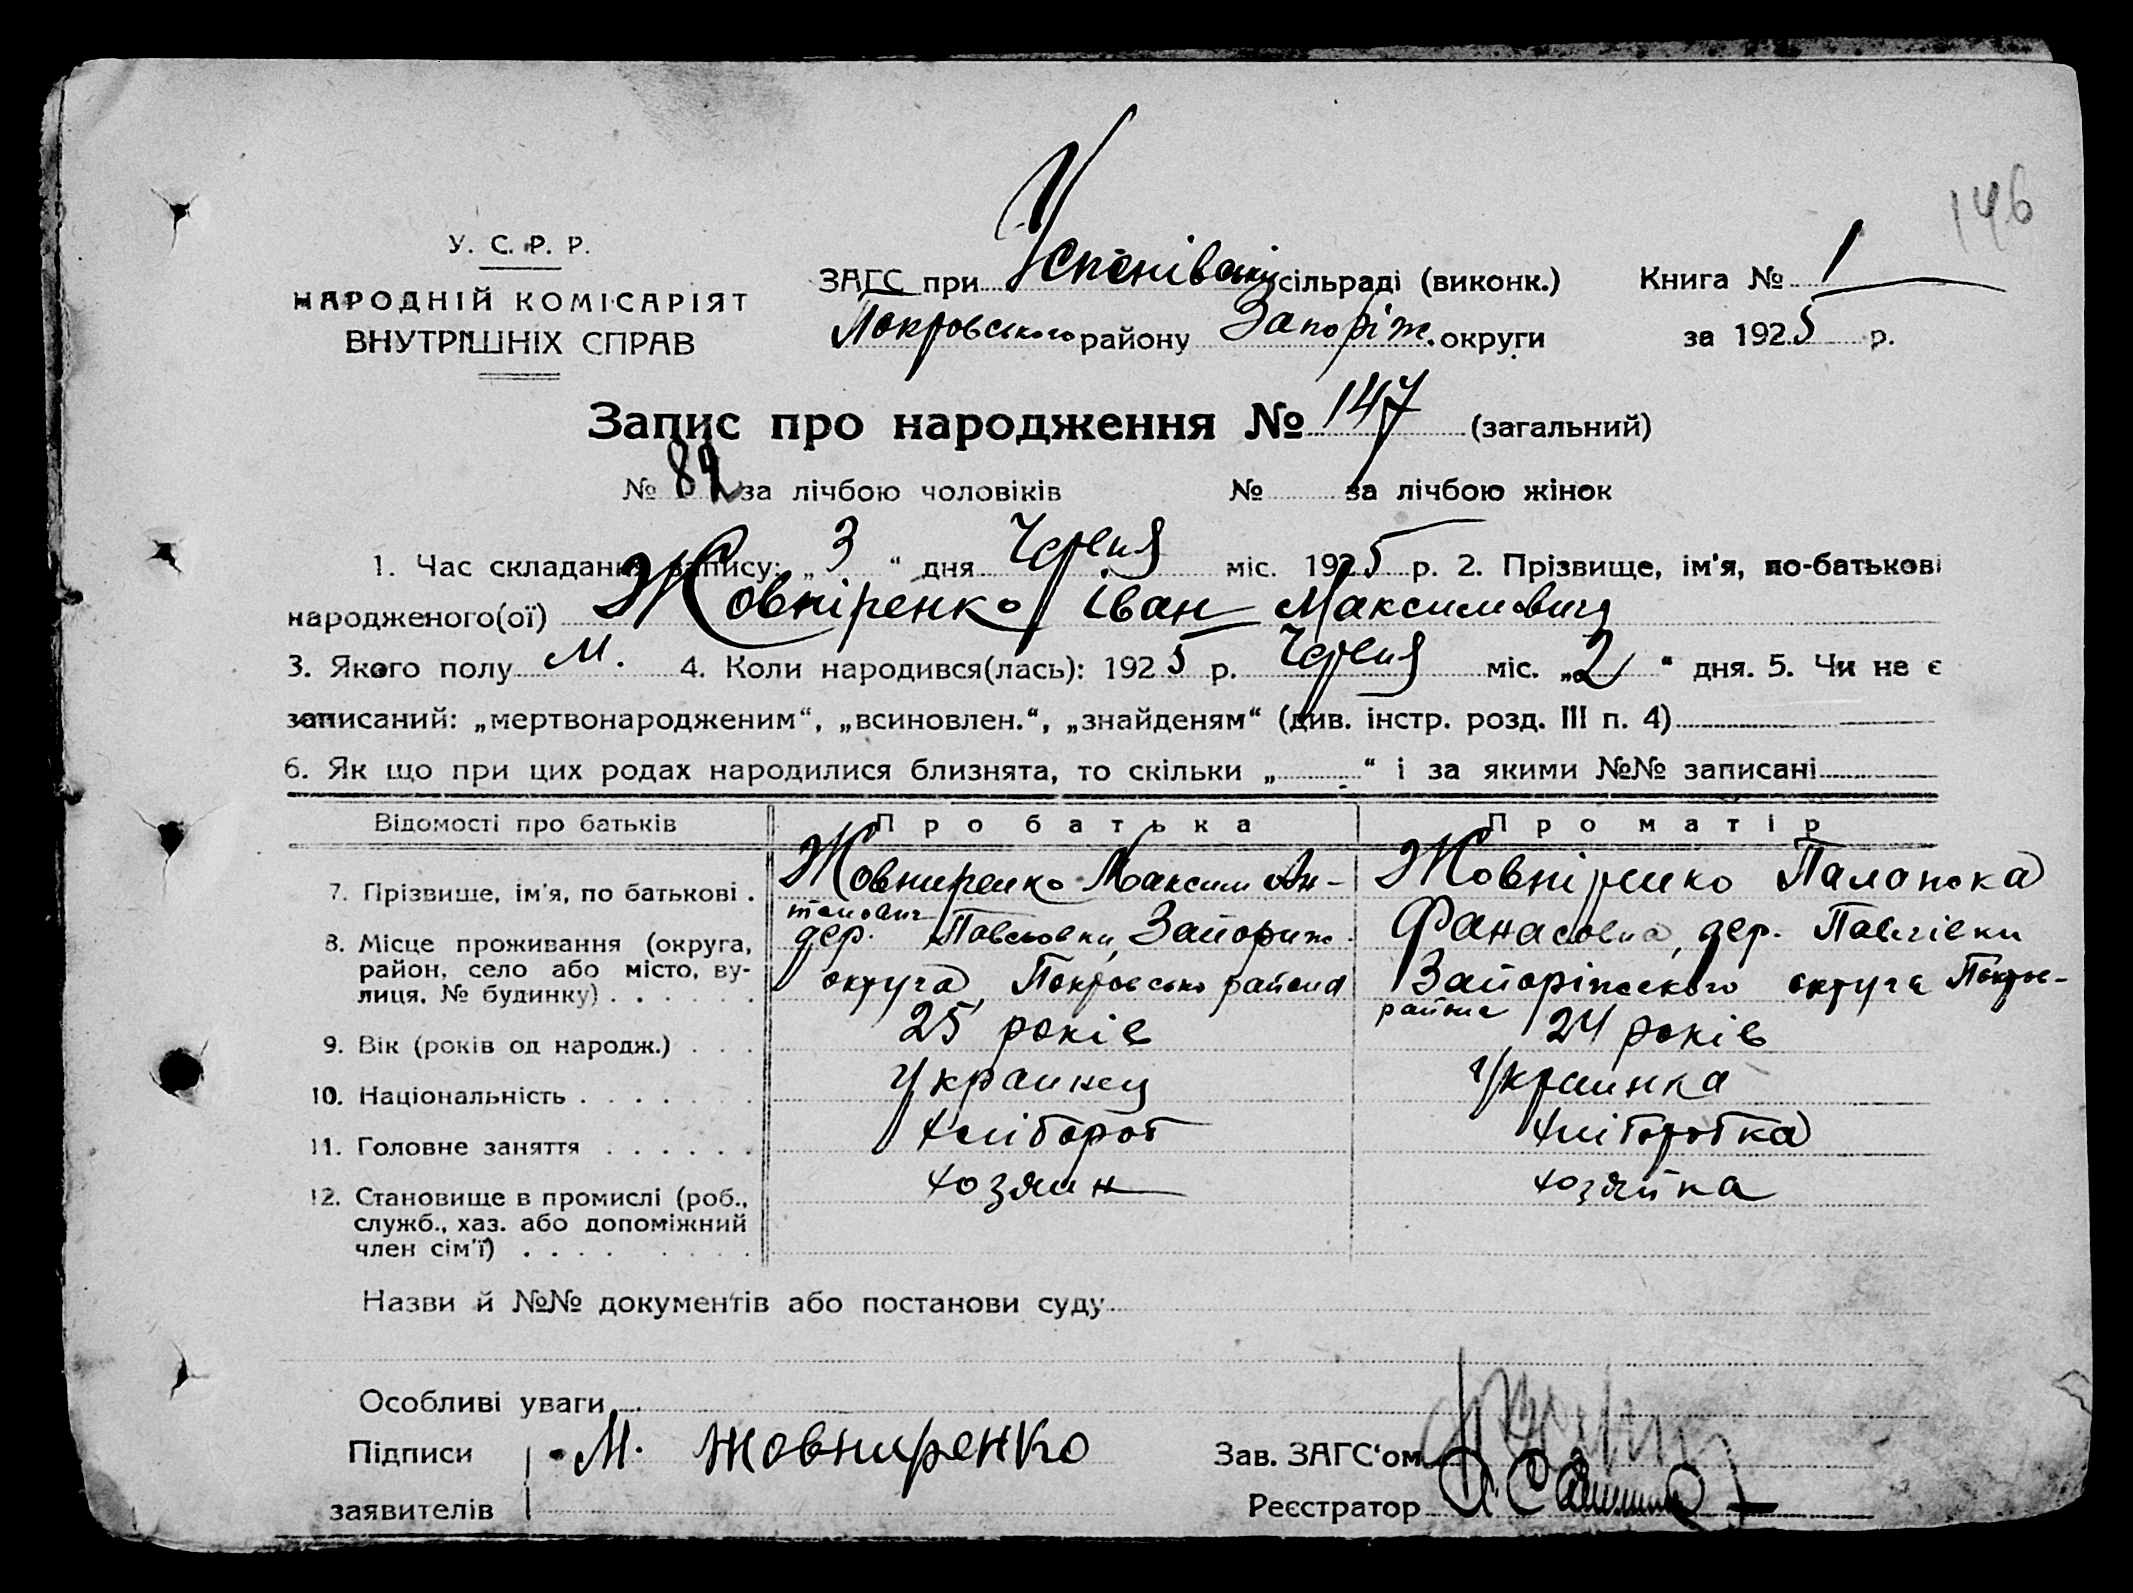 146
У. С. Р. Р.
НАРОДНІЙ КОМІСАРІЯТ
ВНУТРІШНІХ СПРАВ
ЗАГС при Успенівській сільраді (виконк.) Книга № 1
Покровського району Запоріж. округи за 1925 р.
Запис про народження № 147 (загальний)
№ 82 за лічбою чоловіків № за лічбою жінок
1. Час складання запису: „3“ дня Червня міс. 1925 р. 2. Прізвище, ім'я, по-батькові
народженого(ої) Жовніренко Іван Максимович
3. Якого полу м. 4. Коли народився(лась): 1925 р. Червня міс. „2“ дня. 5. Чи не є
записаний: „мертвонародженим“, „всиновлен.“, „знайденям“ (див. інстр. розд. III п. 4)
6. Як що при цих родах народилися близнята, то скільки „ “ і за якими №№ записані
Відомості про батьків Про батька Про матір
7. Прізвище, ім'я, по батькові . Жовниренко Максим Ан- Жовніренко Палажка
тонович Фанасовна, дер. Павлівки
8. Місце проживання (округа, район, село або місто, ву- дер. Павловки, Запориж.
лиця, № будинку) . . . . . . округа Покровсько района Запоріжського округа Покров-
района
9. Вік (років од народж.) . . . 25 років 24 років
10. Національність . . . . . . . Украинец Украинка
11. Головне заняття . . . . . . хлібороб хліборобка
12. Становище в промислі (роб., хозяин хозяйка
служб., хаз. або допоміжний
член сім'ї) . . . . . . . .
Назви й №№ документів або постанови суду
Особливі уваги
Підписи М. Жовниренко Зав. ЗАГС'ом
заявителів Реєстратор